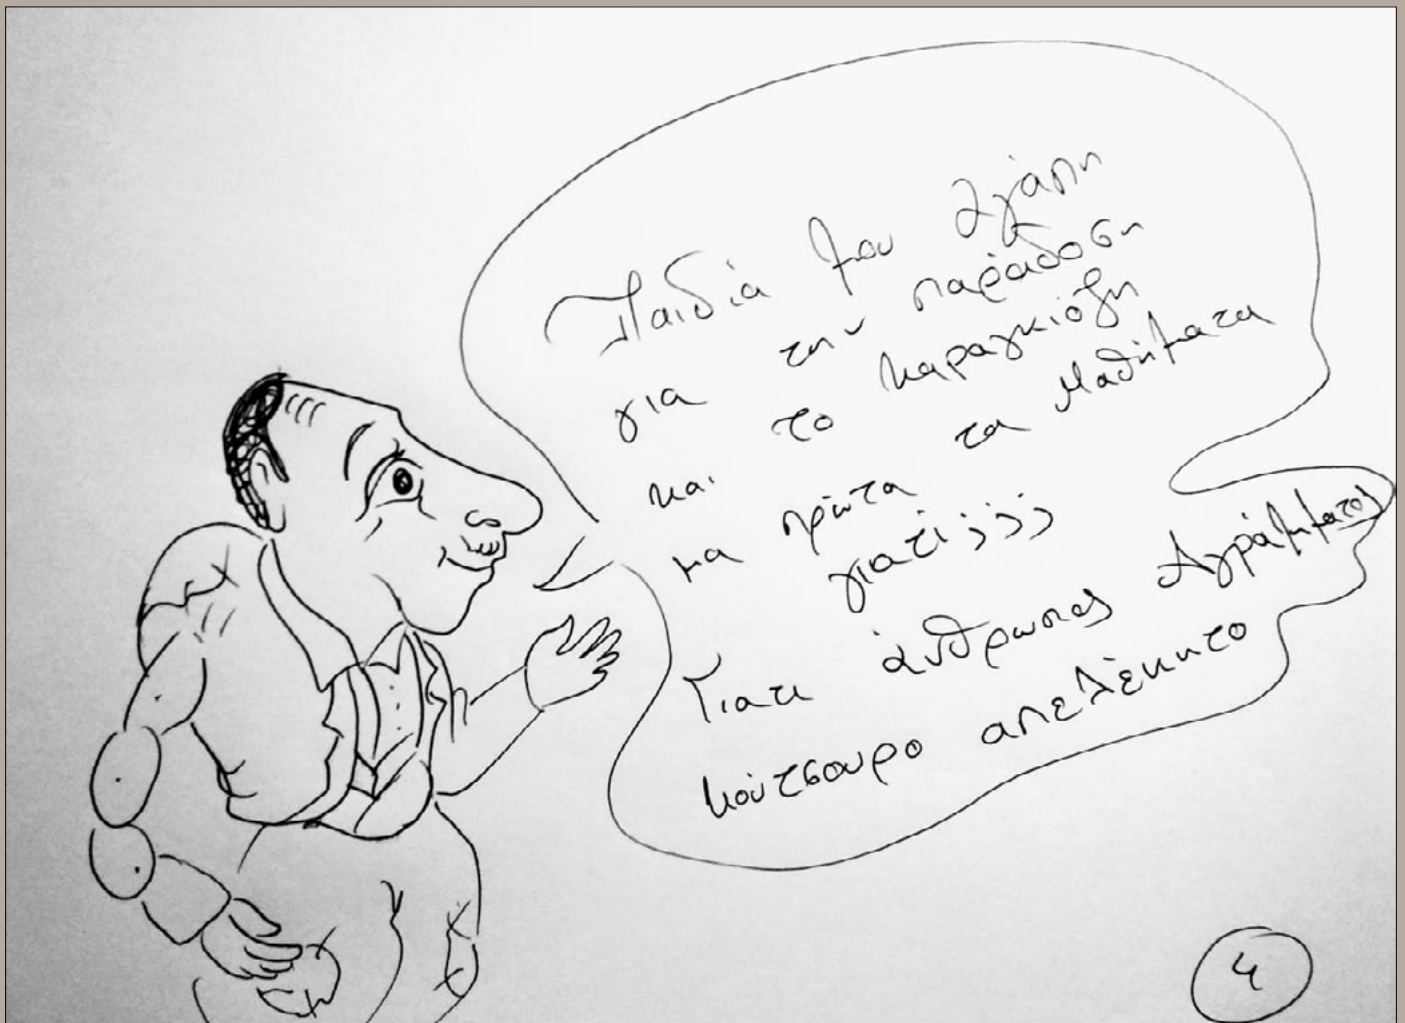 Παιδιά μου αγάπη
για την παράδοση
και το καραγκιόζη
μα πρώτα τα μαθήματα
γιατί ;;;
Γιατι άνθρωπος Αγράμματος
κούτσουρο απελέκητο
4